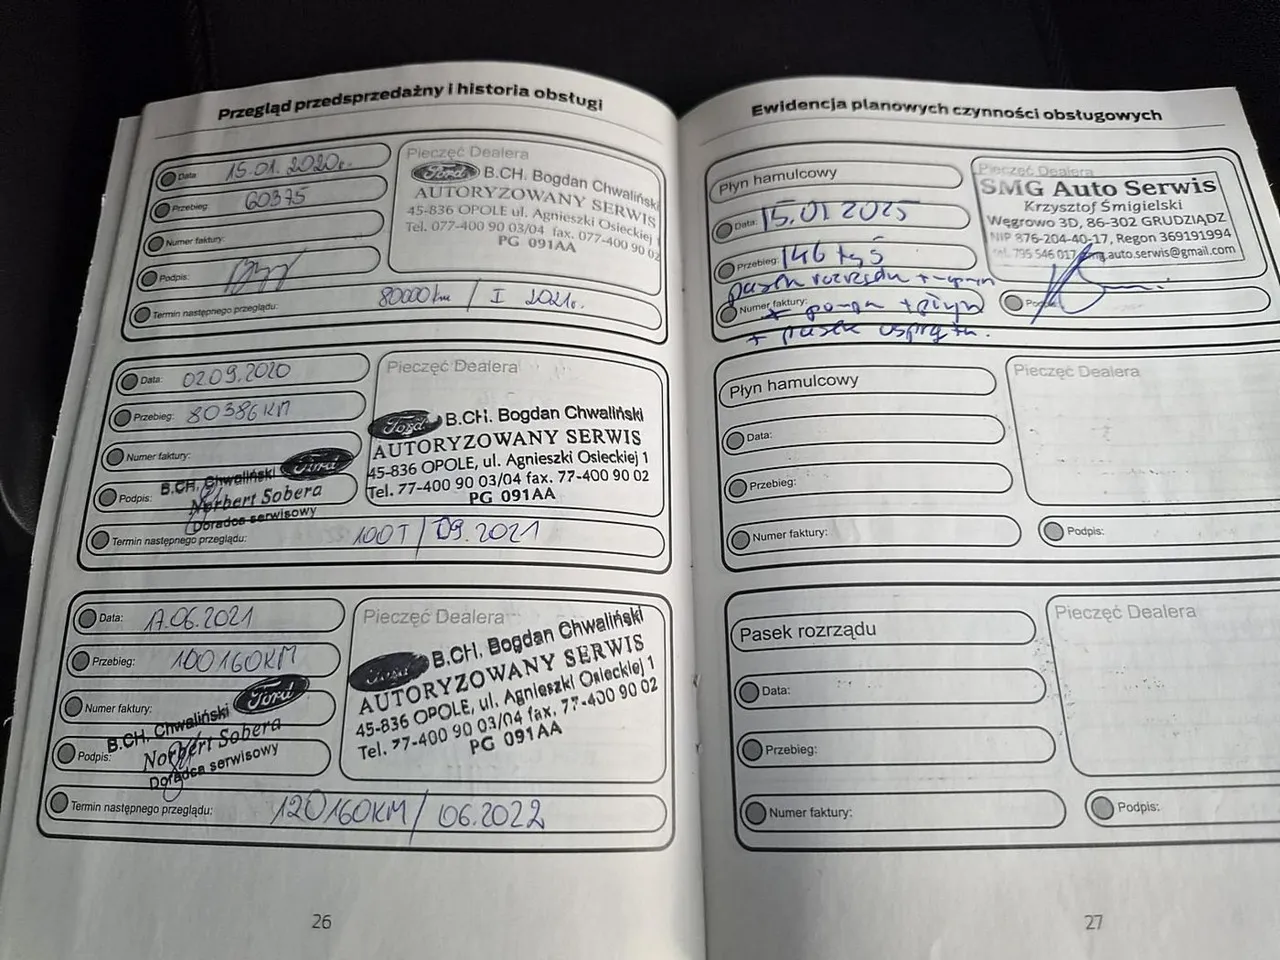 Przegląd przedsprzedażny i historia obsługi
Data: 15.01.2020r.
Przebieg: 60375
Numer faktury:
Podpis:
Termin następnego przeglądu: 80000km / I 2021r.
Pieczęć Dealera
Ford B.CH. Bogdan Chwaliński
AUTORYZOWANY SERWIS
45-836 OPOLE ul. Agnieszki Osieckiej 1
Tel. 077-400 90 03/04 fax. 077-400 90 02
PG 091AA
Data: 02.09.2020
Przebieg: 80386KM
Numer faktury:
B.CH. Chwaliński Ford
Podpis: Norbert Sobera
Doradca serwisowy
Termin następnego przeglądu: 100T / 09.2021
Pieczęć Dealera
Ford B.CH. Bogdan Chwaliński
AUTORYZOWANY SERWIS
45-836 OPOLE, ul. Agnieszki Osieckiej 1
Tel. 77-400 90 03/04 fax. 77-400 90 02
PG 091AA
Data: 17.06.2021
Przebieg: 100160KM
Numer faktury:
B.CH. Chwaliński Ford
Podpis: Norbert Sobera
Doradca serwisowy
Termin następnego przeglądu: 120160KM / 06.2022
Pieczęć Dealera
Ford B.CH. Bogdan Chwaliński
AUTORYZOWANY SERWIS
45-836 OPOLE, ul. Agnieszki Osieckiej 1
Tel. 77-400 90 03/04 fax. 77-400 90 02
PG 091AA
26
Ewidencja planowych czynności obsługowych
Płyn hamulcowy
Data: 15.01 2025
Przebieg: 146 tyś
pasek rozrządu
Numer faktury: + pompa + płyn
+ pasek
Pieczęć Dealera
SMG Auto Serwis
Krzysztof Śmigielski
Węgrowo 3D, 86-302 GRUDZIĄDZ
NIP 876-204-40-17, Regon 369191994
tel. 795 546 017, smg.auto.serwis@gmail.com
Podpis:
Płyn hamulcowy
Data:
Przebieg:
Numer faktury:
Pieczęć Dealera
Podpis:
Pasek rozrządu
Data:
Przebieg:
Numer faktury:
Pieczęć Dealera
Podpis:
27